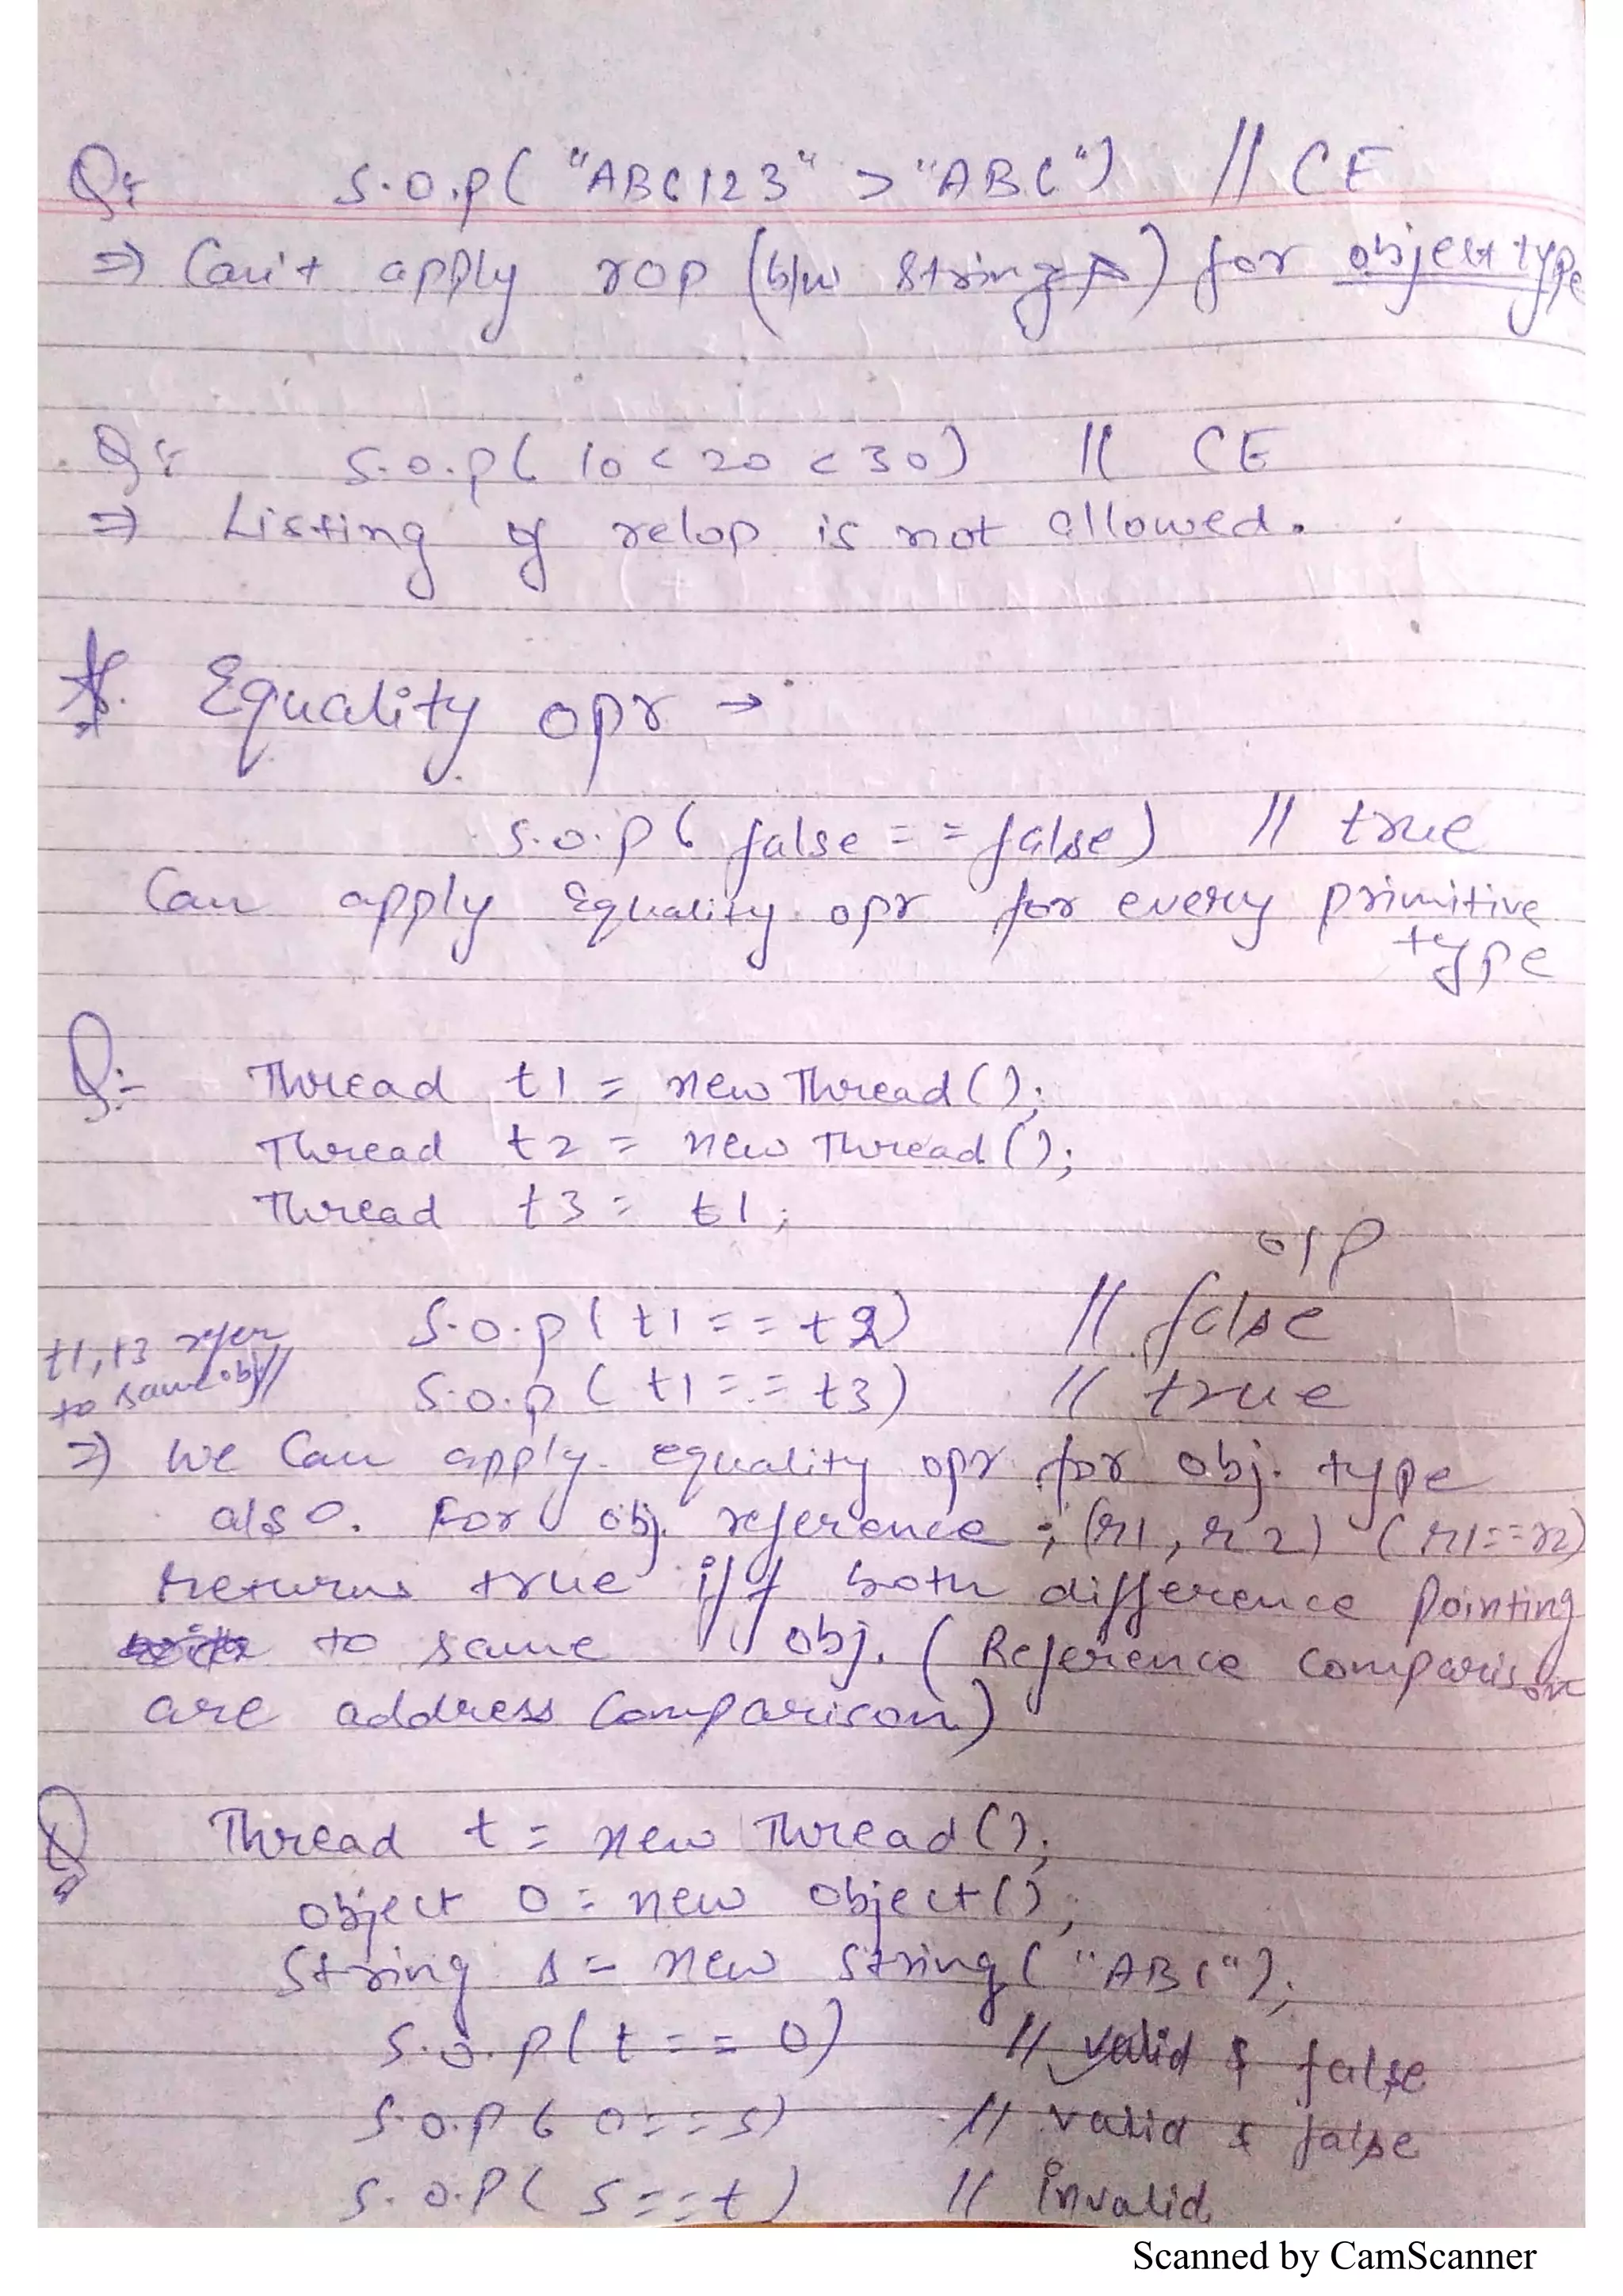 Q:- S.O.P( "ABC123" > "ABC") // CE
=> Can't apply rop (b/w Strings) for object type
Q:- S.O.P( 10 < 20 < 30) // CE
=> Listing of relop is not allowed.
* Equality opr →
S.O.P( false == false) // true
Can apply Equality opr for every primitive
type
Q:- Thread t1 = new Thread();
Thread t2 = new Thread();
Thread t3 = t1;
o/p
S.O.P( t1 == t2) // false
t1, t3 refer
to same obj//
S.O.P( t1 == t3) // true
=> We Can apply equality opr for obj. type
also. For obj. reference; (r1, r2) (r1==r2)
returns true iff both difference pointing
to same obj. (Reference comparison
are address Comparison)
Q Thread t = new Thread();
object O = new object();
String s = new String( "ABC");
S.O.P( t == O) // valid & false
S.O.P( O == s) // valid & false
S.O.P( S == t) // invalid
Scanned by CamScanner